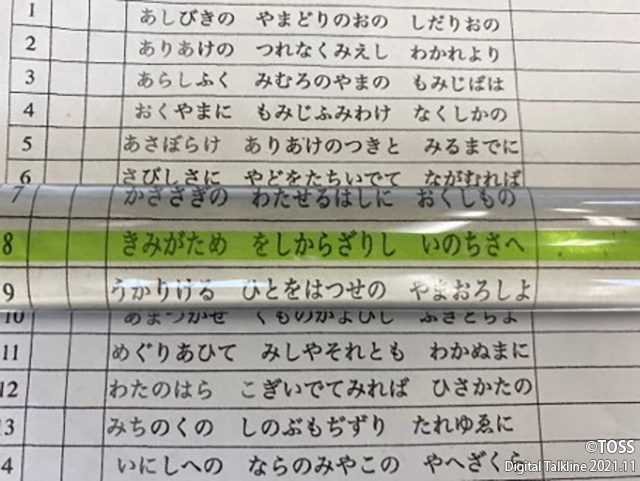 1 あしびきの やまどりのおの しだりおの
2 ありあけの つれなくみえし わかれより
3 あらしふく みむろのやまの もみじばは
4 おくやまに もみじふみわけ なくしかの
5 あさぼらけ ありあけのつきと みるまでに
6 さびしさに やどをたちいでて ながむれば
7 かささぎの わたせるはしに おくしもの
8 きみがため をしからざりし いのちさへ
9 うかりける ひとをはつせの やまおろしよ
10 あまつかぜ くものかよひじ ふきとぢよ
11 めぐりあひて みしやそれとも わかぬまに
12 わたのはら こぎいでてみれば ひさかたの
13 みちのくの しのぶもぢずり たれゆゑに
4 いにしへの ならのみやこの やへざくら
©TOSS
Digital Talkline 2021.11